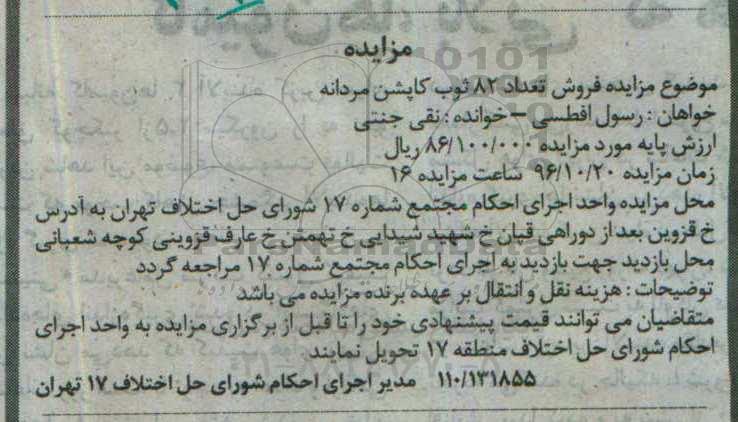 مزایده
موضوع مزایده فروش تعداد ۸۲ ثوب کاپشن مردانه
خواهان : رسول افطسی – خوانده : نقی جنتی
ارزش پایه مورد مزایده ۸۶/۱۰۰/۰۰۰ ریال
زمان مزایده ۹۶/۱۰/۲۰ ساعت مزایده ۱۶
محل مزایده واحد اجرای احکام مجتمع شماره ۱۷ شورای حل اختلاف تهران به آدرس
خ قزوین بعد از دوراهی قپان خ شهید شیدایی خ تهمتن خ عارف قزوینی کوچه شعبانی
محل بازدید جهت بازدید به اجرای احکام مجتمع شماره ۱۷ مراجعه گردد
توضیحات : هزینه نقل و انتقال بر عهده برنده مزایده می باشد
متقاضیان می توانند قیمت پیشنهادی خود را تا قبل از برگزاری مزایده به واحد اجرای
احکام شورای حل اختلاف منطقه ۱۷ تحویل نمایند
۱۱۰/۱۳۱۸۵۵ مدیر اجرای احکام شورای حل اختلاف ۱۷ تهران